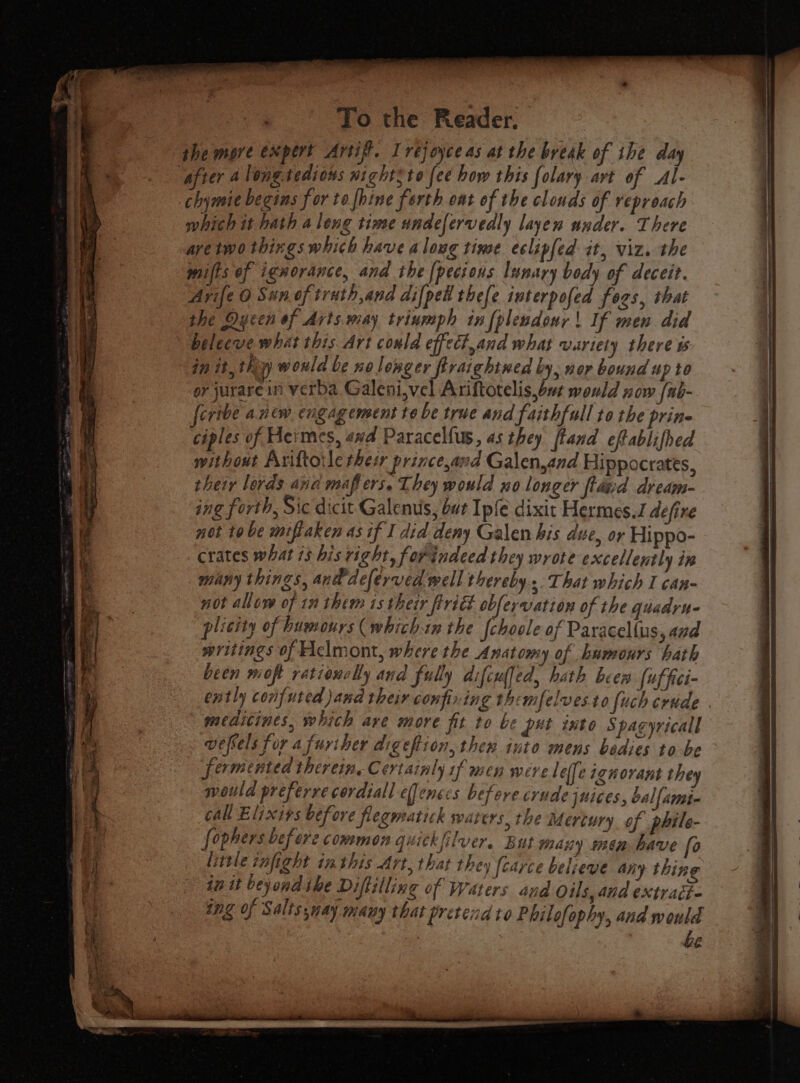 To the Reader.
the more expert Artiſt. I rejoyce as at the break of the day
after a long tedious night, to ſee how this ſolary art of Al-
chymie begins for to ſhine forth out of the clouds of reproach
which it hath a long time undeſervedly layen under. There
are two things which have a long time eclipſed it, viz. the
miſts of ignorance, and the ſpecious lunary body of deceit.
Ariſe O Sun of truth, and diſpell theſe interpoſed fogs, that
the Queen of Arts may triumph in ſplendour! If men did
beleeve what this Art could effect, and what variety there is
in it, they would be no longer ſtraightned by, nor bound up to
or jurare in verba Galeni, vel Ariſtotelis, but would now ſub-
ſcribe anew engagement to be true and faithfull to the prin-
ciples of Hermes, and Paracelſus, as they ſtand eſtabliſhed
without Ariſtotle their prince, and Galen, and Hippocrates,
their lords and maſters. They would no longer ſtand dream-
ing forth, Sic dicit Galenus, but Ipſe dixit Hermes. I deſire
not to be miſtaken as if I did deny Galen his due, or Hippo-
crates what is his right, for indeed they wrote excellently in
many things, and deſerved well thereby: That which I can-
not allow of in them is their ſtrict obſervation of the quadru-
plicity of humours (which in the ſchoole of Paracelſus, and
writings of Helmont, where the Anatomy of humours hath
been moſt rationally and fully diſcuſſed, hath been ſuffici-
ently confuted) and their confining themſelves to ſuch crude
medicines, which are more fit to be put into Spagyricall
veſſels for a further digeſtion, then into mens bodies to be
fermented therein. Certainly if men were leſſe ignorant they
would preferre cordiall eſſences before crude juices, balſami-
call Elixirs before flegmatick waters, the Mercury of philo-
ſophers before common quickſilver. But many men have ſo
little inſight in this Art, that they ſcarce believe any thing
in it beyond the Diſtilling of Waters and Oils, and extract-
ing of Salts; nay many that pretend to Philoſophy, and would
be